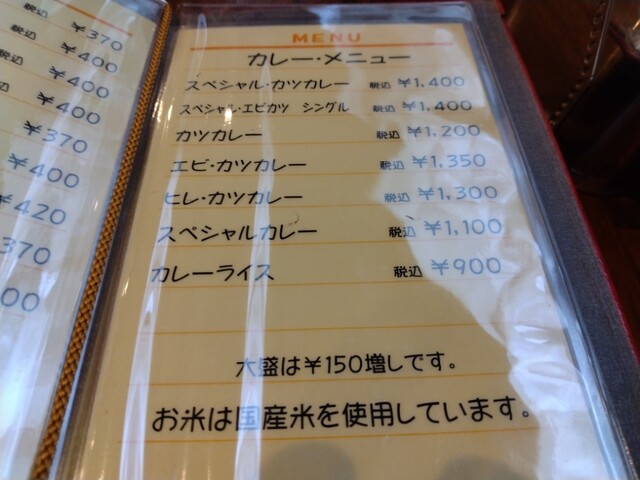 税込 ¥370
税込 ¥400
税込 ¥400
¥400
¥370
¥400
¥420
370
00
MENU
カレー・メニュー
スペシャル・カツカレー 税込 ¥1,400
スペシャル・エビカツ シングル 税込 ¥1,400
カツカレー 税込 ¥1,200
エビ・カツカレー 税込 ¥1,350
ヒレ・カツカレー 税込 ¥1,300
スペシャルカレー 税込 ¥1,100
カレーライス 税込 ¥900
大盛は¥150増しです。
お米は国産米を使用しています。